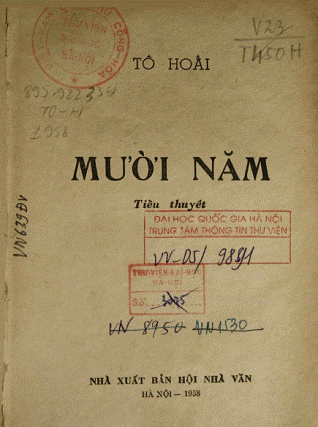 V23
T450H
TÔ HOÀI
895.922 334
TO-H
1958
MƯỜI NĂM
Tiểu thuyết
ĐẠI HỌC QUỐC GIA HÀ NỘI
TRUNG TÂM THÔNG TIN THƯ VIỆN
VV-D5/
THƯ VIỆN ĐẠI HỌC
HÀ NỘI
SỐ
VN 8950 VN1530
NHÀ XUẤT BẢN HỘI NHÀ VĂN
HÀ NỘI — 1958